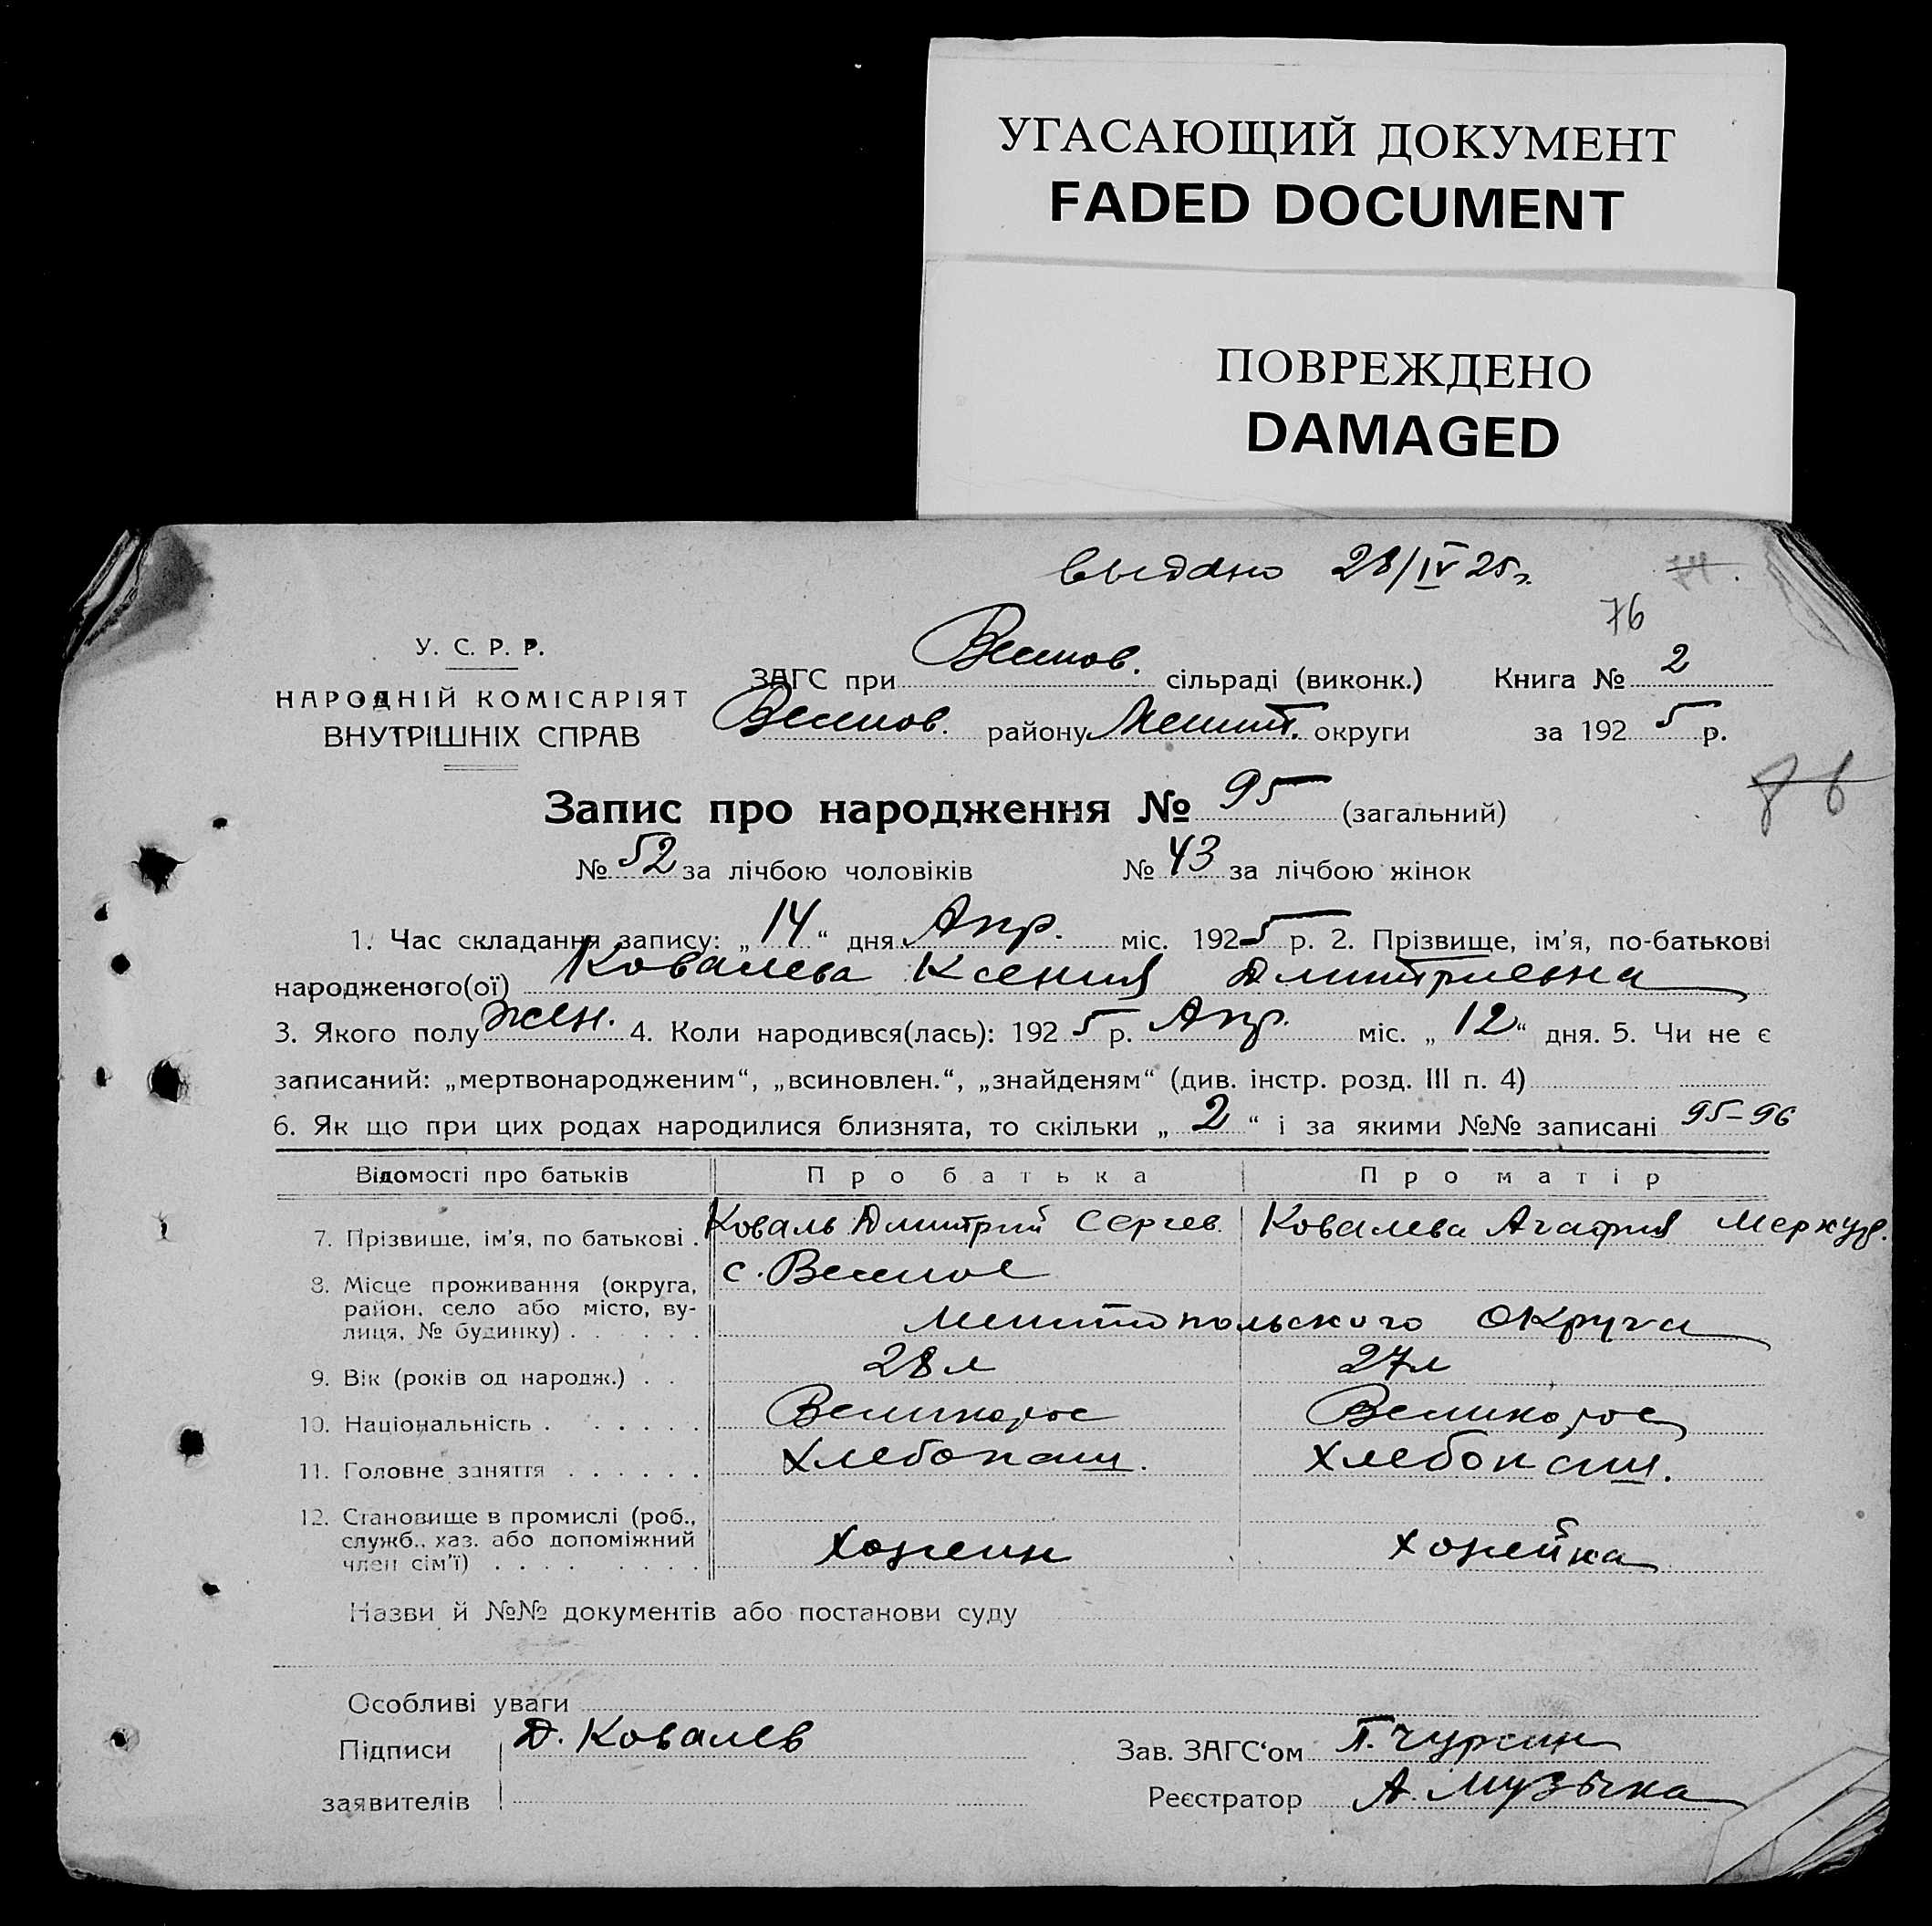 УГАСАЮЩИЙ ДОКУМЕНТ
FADED DOCUMENT
ПОВРЕЖДЕНО
DAMAGED
выдано 28/IV 25 г.
76
У. С. Р. Р.
НАРОДНІЙ КОМІСАРІЯТ
ВНУТРІШНІХ СПРАВ
ЗАГС при Веселов. сільраді (виконк.) Книга № 2
Веселов. району Мелит. округи за 1925 р.
Запис про народження № 95 (загальний)
№ 52 за лічбою чоловіків № 43 за лічбою жінок
1. Час складання запису: „14“ дня Апр. міс. 1925 р. 2. Прізвище, ім'я, по-батькові
народженого(ої) Ковалева Ксения Дмитриевна
3. Якого полу жен. 4. Коли народився(лась): 1925 р. Апр. міс. „12“ дня. 5. Чи не є
записаний: „мертвонародженим“, „всиновлен.“, „знайденям“ (див. інстр. розд. III п. 4)
6. Як що при цих родах народилися близнята, то скільки „2“ і за якими №№ записані 95-96
Відомості про батьків Про батька Про матір
7. Прізвище, ім'я, по батькові . Коваль Дмитрий Сергев. Ковалева Агафия Меркур.
8. Місце проживання (округа, с. Веселое
район, село або місто, ву-
лиця, № будинку) . . . . . . Мелитопольского Округа
9. Вік (років од народж.) . . 28 л 27 л
10. Національність . . . . . . Великорос Великорос
11. Головне заняття . . . . . . Хлебопаш. Хлебопаш.
12. Становище в промислі (роб.,
служб., хаз. або допоміжний
член сім'ї) . . . . . . . . Хозяин хозяйка
Назви й №№ документів або постанови суду
Особливі уваги
Підписи Д. Ковалев Зав. ЗАГС'ом П. Чурсин
заявителів Реєстратор А. Музычка